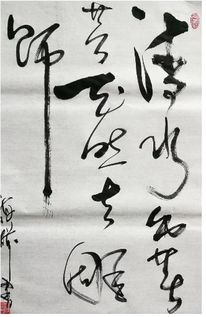 清水出芙
蓉天然去雕
饰